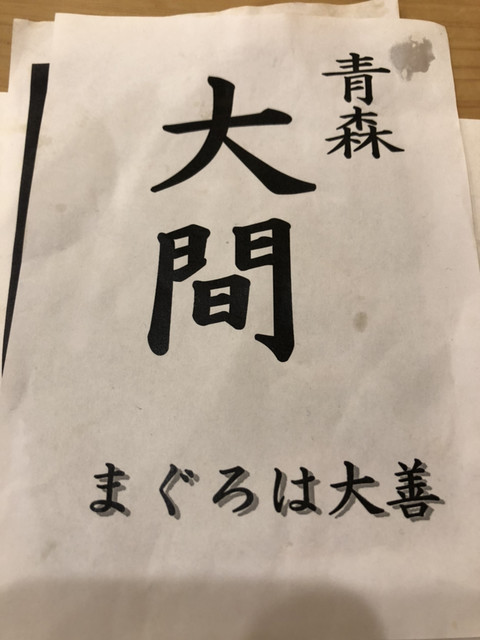 青森
大間
まぐろは大善